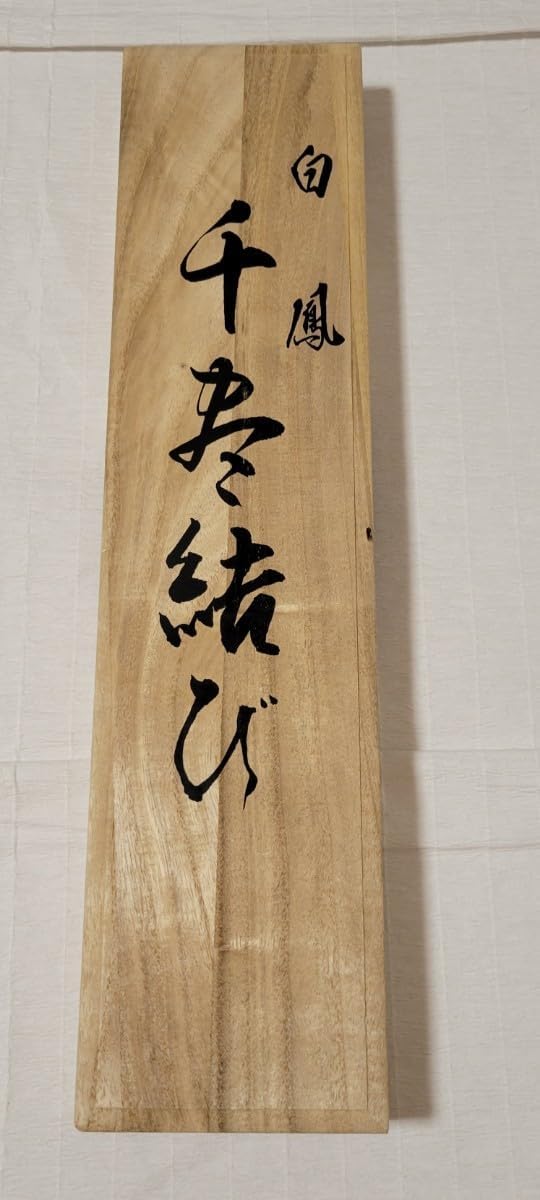 白鳳
千尽結び